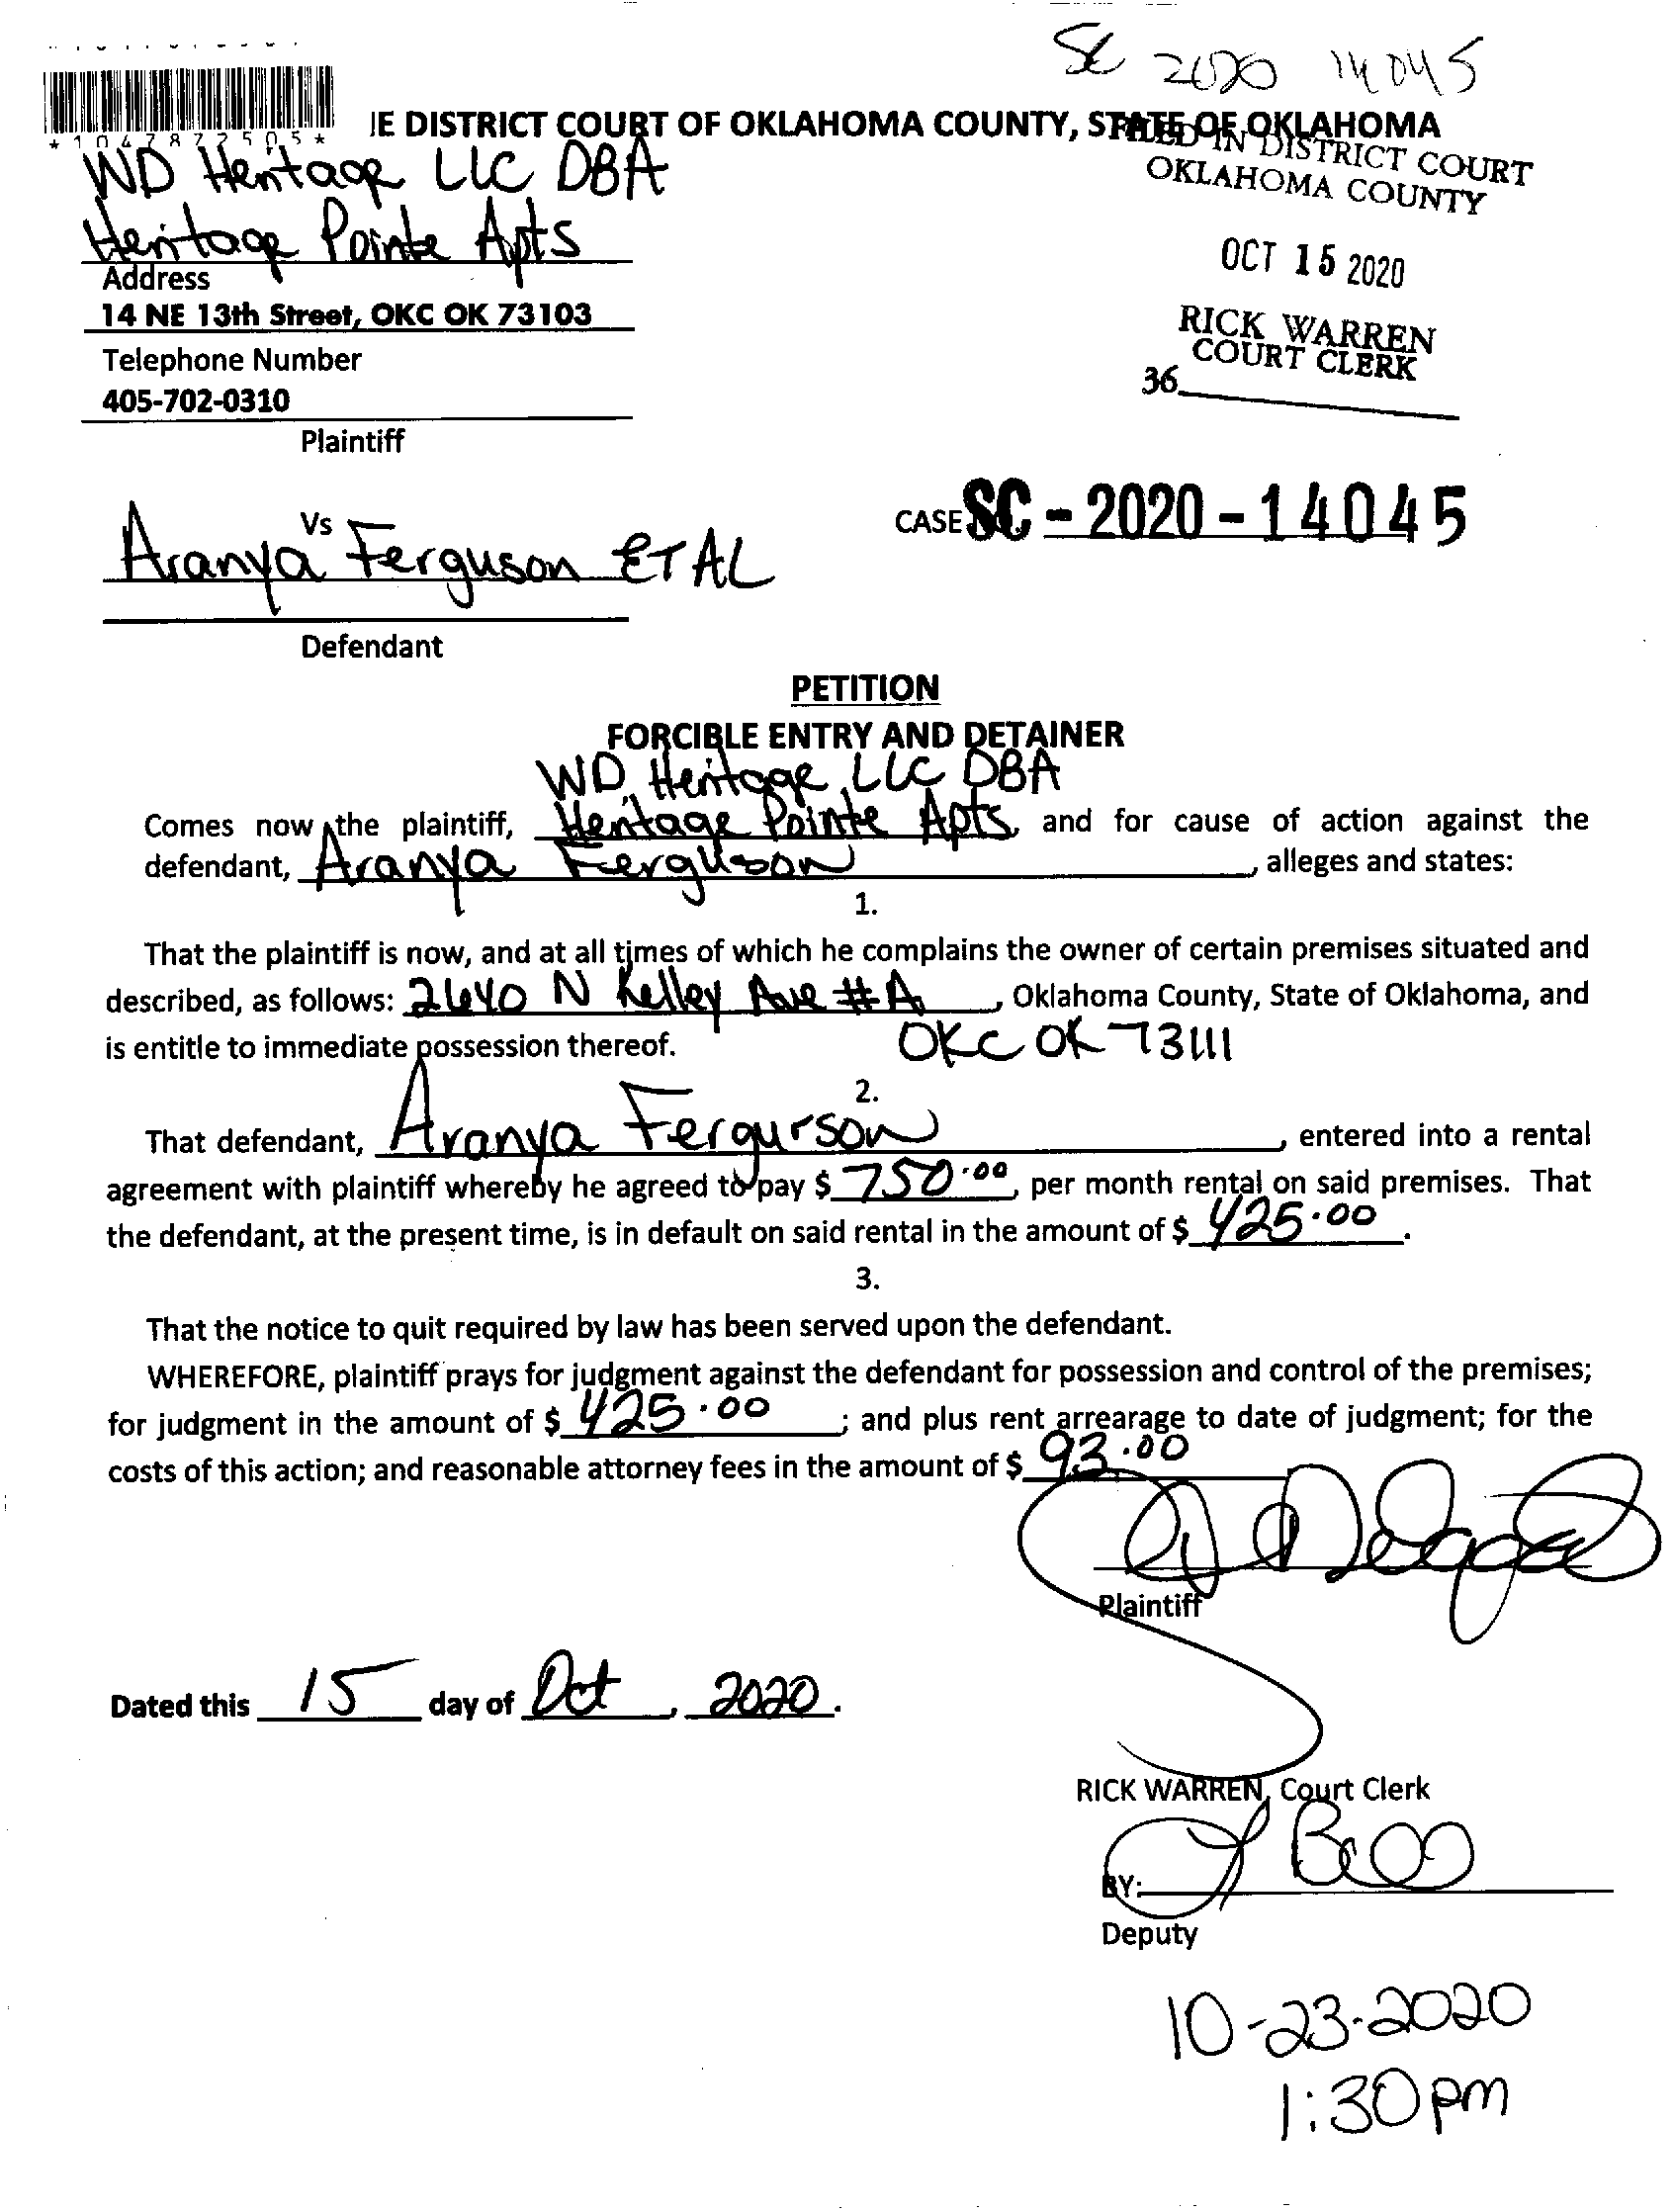 SC 2020 14045
*1047877505*
IE DISTRICT COURT OF OKLAHOMA COUNTY, STATE OF OKLAHOMA
FILED IN DISTRICT COURT
OKLAHOMA COUNTY
OCT 15 2020
RICK WARREN
COURT CLERK
36
WD Heritage LLC DBA
Heritage Pointe Apts
Address
14 NE 13th Street, OKC OK 73103
Telephone Number
405-702-0310
Plaintiff
Vs
CASE SC - 2020 - 14045
Aranya Ferguson ET AL
Defendant
PETITION
FORCIBLE ENTRY AND DETAINER
WD Heritage LLC DBA
Comes now the plaintiff, Heritage Pointe Apts, and for cause of action against the
defendant, Aranya Ferguson, alleges and states:
1.
That the plaintiff is now, and at all times of which he complains the owner of certain premises situated and
described, as follows: 2640 N Kelley Ave #A, Oklahoma County, State of Oklahoma, and
is entitle to immediate possession thereof. OKC OK 73111
2.
That defendant, Aranya Fergurson, entered into a rental
agreement with plaintiff whereby he agreed to pay $ 750.00, per month rental on said premises. That
the defendant, at the present time, is in default on said rental in the amount of $ 425.00.
3.
That the notice to quit required by law has been served upon the defendant.
WHEREFORE, plaintiff prays for judgment against the defendant for possession and control of the premises;
for judgment in the amount of $ 425.00; and plus rent arrearage to date of judgment; for the
costs of this action; and reasonable attorney fees in the amount of $ 93.00
Plaintiff
Dated this 15 day of Oct, 2020.
RICK WARREN, Court Clerk
BY:
Deputy
10-23-2020
1:30pm